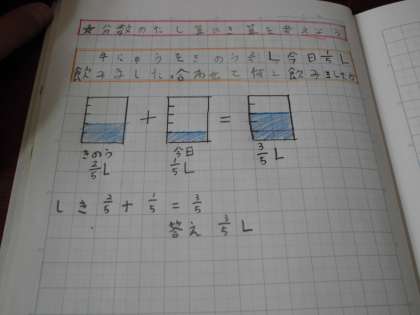 ☆分数のたし算ひき算を考えよう
牛にゅうをきのう2/5L 今日1/5L
飲みました。合わせて何L飲みましたか
+ =
きのう 今日
2/5L 1/5L 3/5L
しき 2/5 + 1/5 = 3/5
答え 3/5L